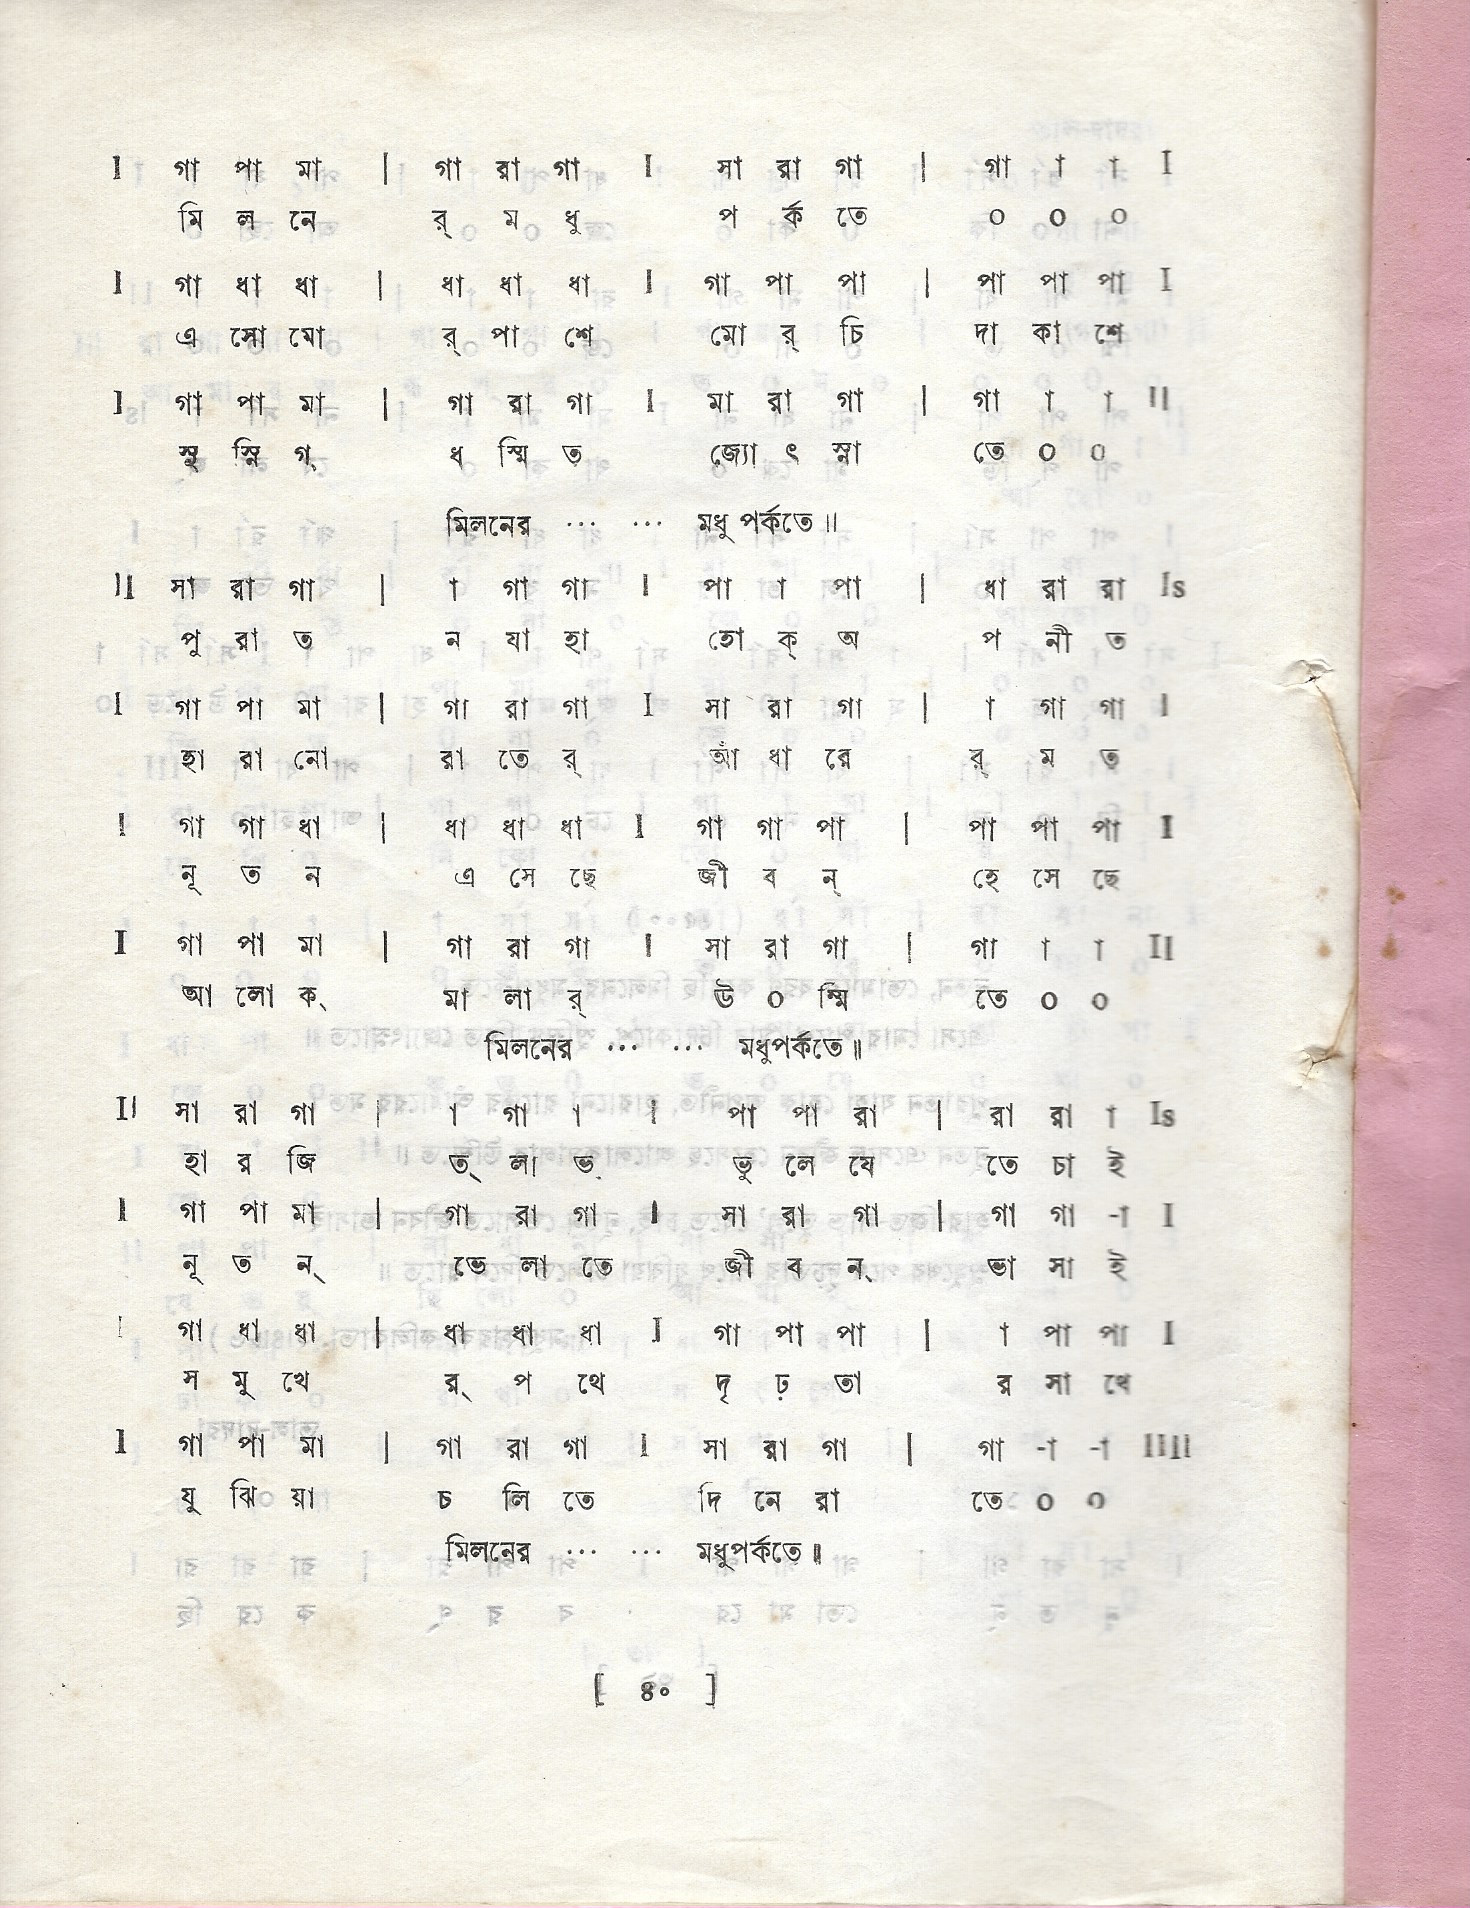 I গা পা মা | গা রা গা I সা রা গা | গা া া I
মি ল নে র্ ম ধু প র্ক তে ০ ০ ০
I গা ধা ধা | ধা ধা ধা I গা পা পা | পা পা পা I
এ সো মো র্ পা শে মো র্ চি দা কা শে
I গা পা মা | গা রা গা I মা রা গা | গা া া II
সু স্নি গ্ ধ স্মি ত জ্যো ৎ স্না তে ০ ০
মিলনের ... ... মধু পর্কতে॥
II সা রা গা | া গা গা I পা া পা | ধা রা রা Is
পু রা ত ন যা হা হো ক্ অ প নী ত
I গা পা মা | গা রা গা I সা রা গা | া গা গা I
হা রা নো রা তে র্ আঁ ধা রে র্ ম ত
I গা গা ধা | ধা ধা ধা I গা গা পা | পা পা পা I
নূ ত ন এ সে ছে জী ব ন্ হে সে ছে
I গা পা মা | গা রা গা I সা রা গা | গা া া II
আ লো ক্ মা লা র্ ঊ ০ র্ম্মি তে ০ ০
মিলনের ... ... মধুপর্কতে॥
II সা রা গা | া গা া I পা পা রা | রা রা া Is
হা র জি ত্ লা ভ্ ভু লে যে তে চা ই
I গা পা মা | গা রা গা I সা রা গা | গা গা -া I
নূ ত ন্ ভে লা তে জী ব ন্ ভা সা ই
I গা ধা ধা | ধা ধা ধা I গা পা পা | া পা পা I
স মু খে র্ প থে দৃ ঢ় তা র সা থে
I গা পা মা | গা রা গা I সা রা গা | গা -া -া IIII
যু ঝি য়া চ লি তে দি নে রা তে ০ ০
মিলনের ... ... মধুপর্কতে॥
[ ৪০ ]